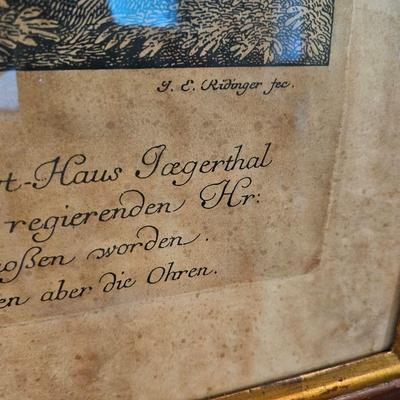 J. E. Ridinger fec.
t-Haus Jægerthal
regierenden Hr:
oßen worden.
en aber die Ohren.